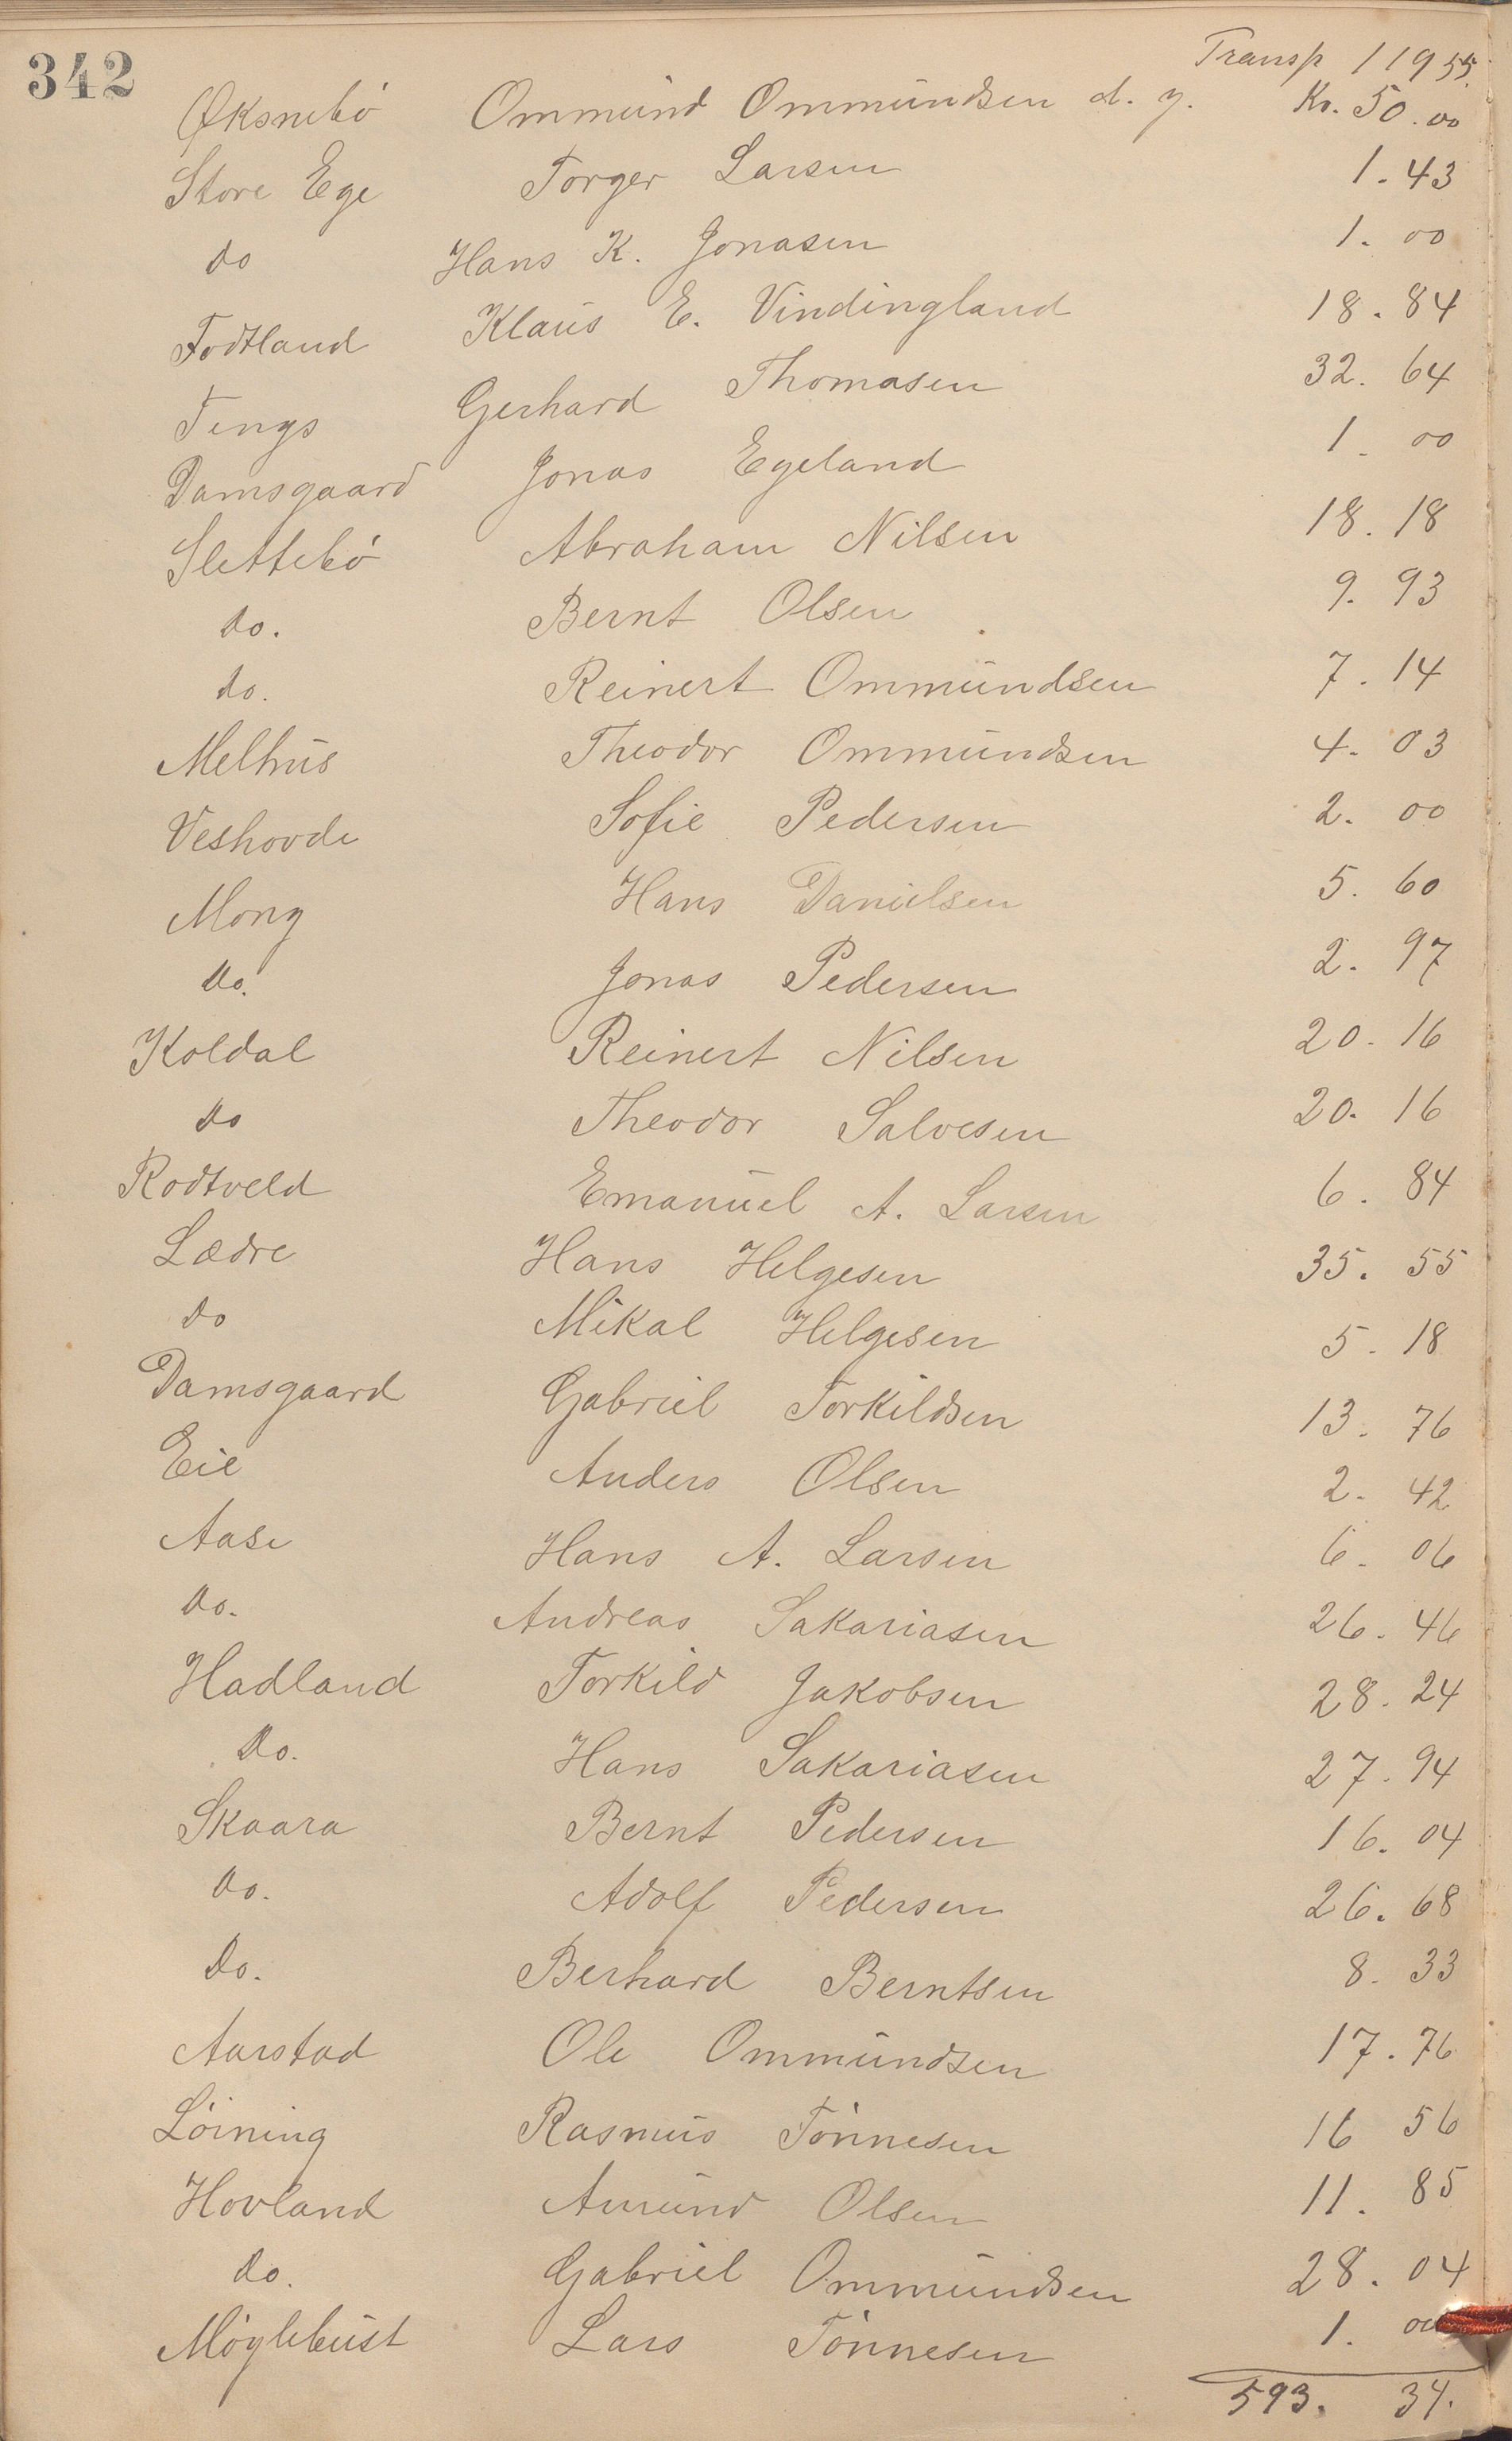 342
Transp 119 55
Øksnebö Ommund Ommundsen d. y. Kr. 50.00
Store Ege Torger Larsen 1.43
do Hans K. Jonasen 1.00
Fodtland Klaus E. Vindingland 18.84
Tengs Gerhard Thomasen 32.64
Damsgaard Jonas Egeland 1.00
Slettebö Abraham Nilsen 18.18
do. Bernt Olsen 9.93
do. Reinert Ommundsen 7.14
Melhus Theodor Ommundsen 4.03
Veshovde Sofie Pedersen 2.00
Mong Hans Danielsen 5.60
do. Jonas Pedersen 2.97
Koldal Reinert Nilsen 20.16
do Theodor Salvesen 20.16
Rodtveld Emanuel A. Larsen 6.84
Lædre Hans Helgesen 35.55
do Mikal Helgesen 5.18
Damsgaard Gabriel Torkildsen 13.76
Eie Anders Olsen 2.42
Aase Hans A. Larsen 6.06
do. Andreas Sakariasen 26.46
Hadland Torkild Jakobsen 28.24
Do. Hans Sakariasen 27.94
Skaara Bernt Pedersen 16.04
do. Adolf Pedersen 26.68
Do. Berhard Berntsen 8.33
Aarstad Ole Ommundsen 17.76
Löining Rasmus Tönnesen 16 56
Hovland Amund Olsen 11.85
do. Gabriel Ommundsen 28.04
Möglebust Lars Tönnesen 1. 00
593. 34.